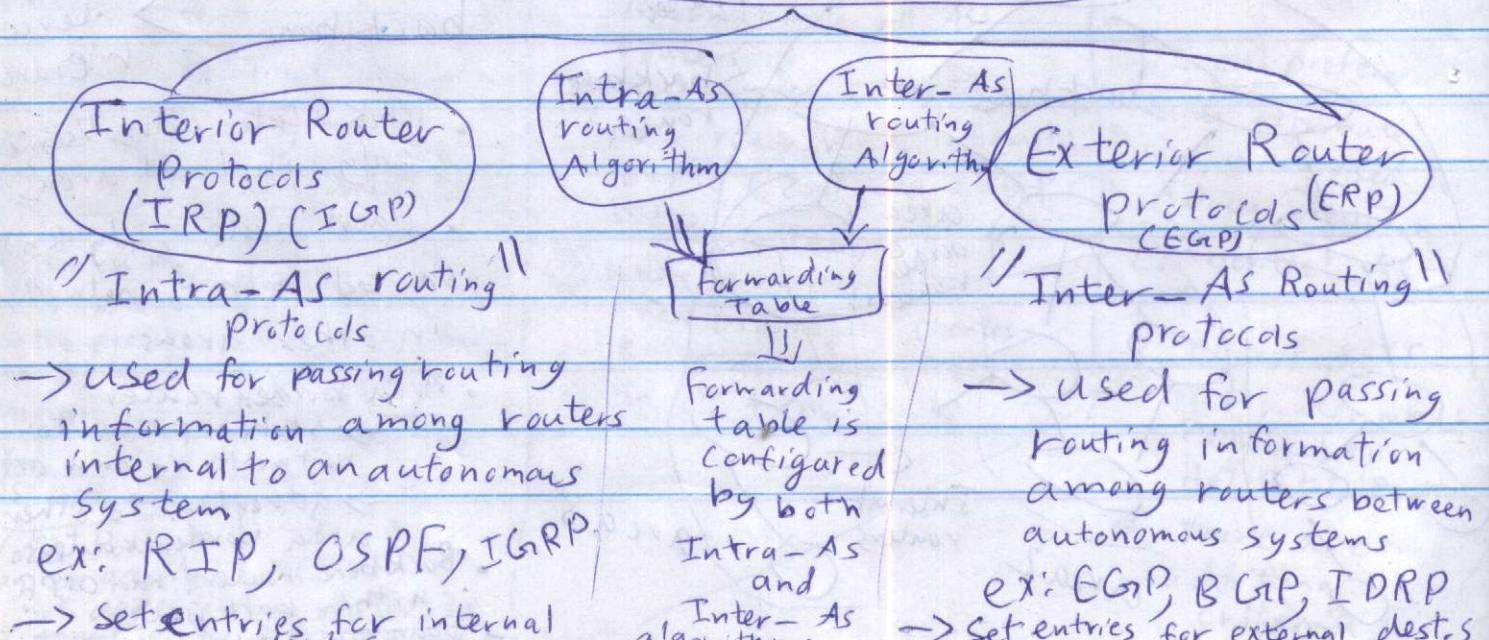 Interior Router
Protocols
(IRP) (IGP)
"Intra-As routing"
protocols
-> used for passing routing
information among routers
internal to an autonomous
system
ex: RIP, OSPF, IGRP
-> set entries for internal
Intra-As
routing
Algorithm
Inter-As
routing
Algorithm
Forwarding
Table
Forwarding
table is
configured
by both
Intra-As
and
Inter-As
Exterior Router
protocols (ERP)
(EGP)
"Inter-As Routing"
protocols
-> used for passing
routing information
among routers between
autonomous systems
ex: EGP, BGP, IDRP
-> set entries for external dest.s